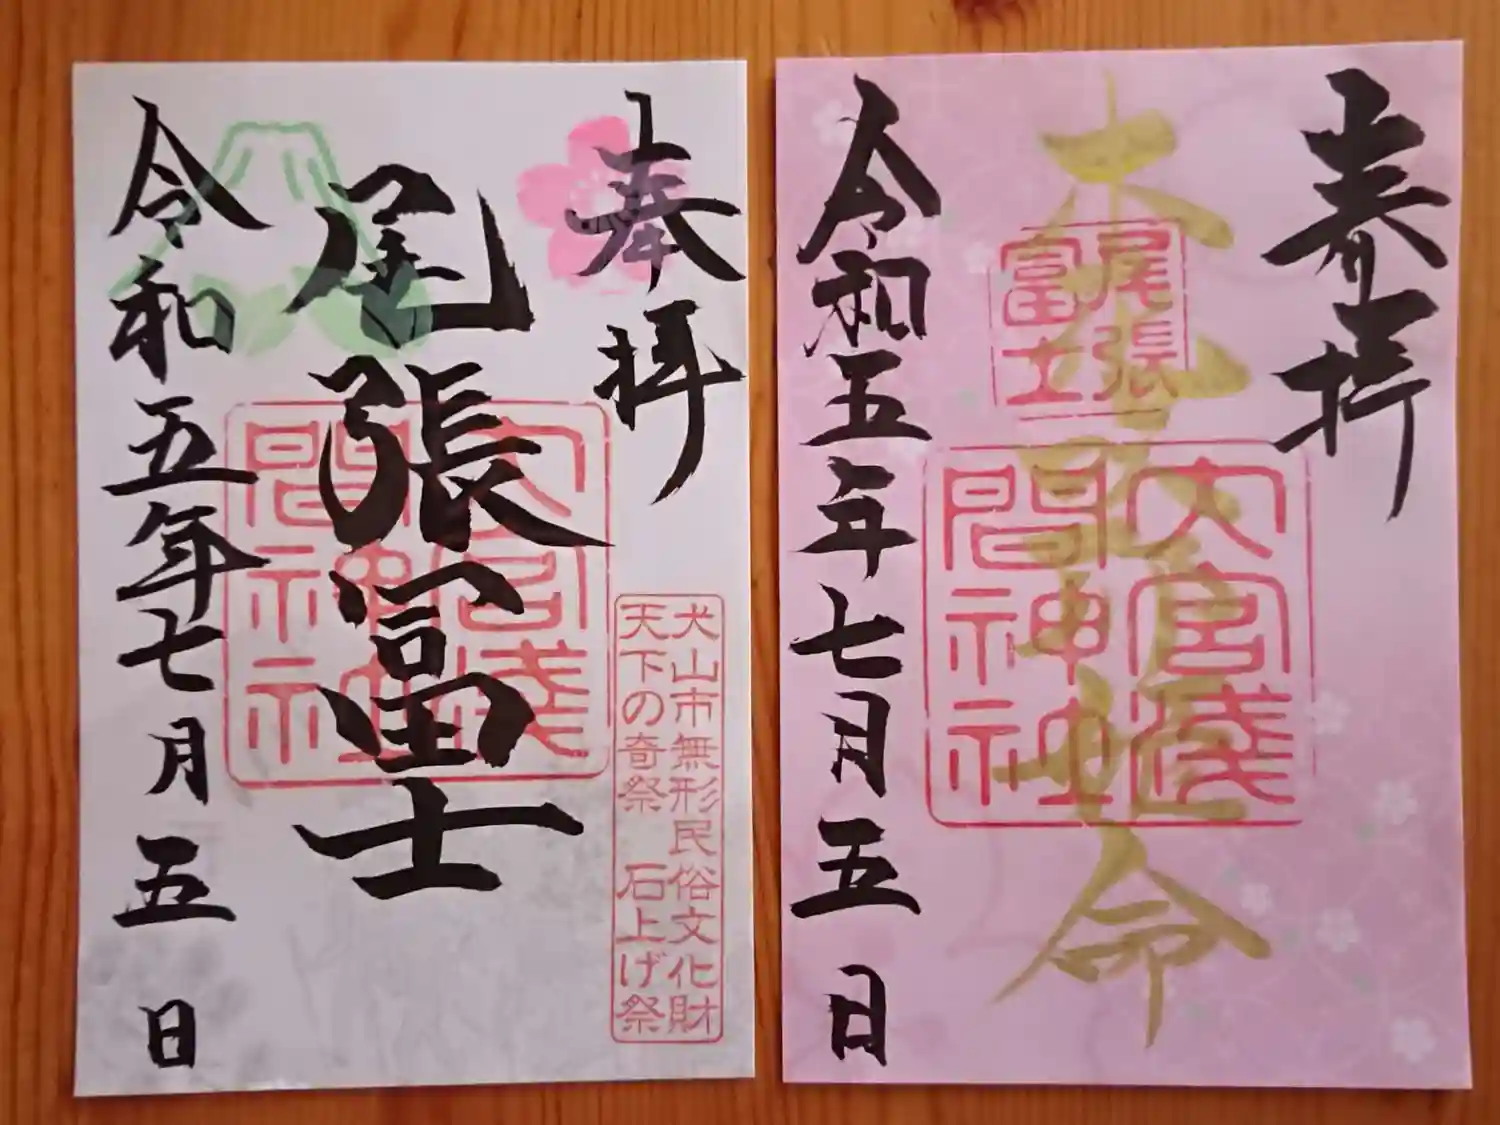 奉拝
尾張冨士
令和五年七月五日
大宮浅間神社
犬山市無形民俗文化財
天下の奇祭 石上げ祭
奉拝
木花開耶姫命
尾張富士
大宮浅間神社
令和五年七月五日